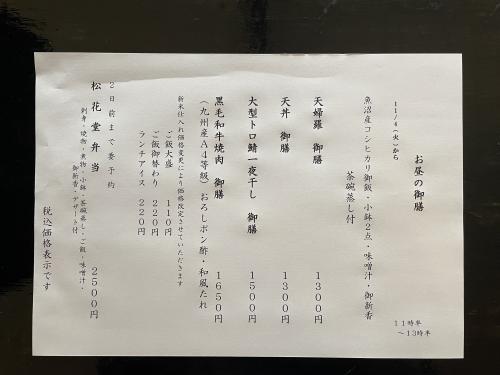 お昼の御膳
11時半
~13時半
11/4(火)から
魚沼産コシヒカリ御飯・小鉢2点・味噌汁・御新香
茶碗蒸し付
天婦羅 御膳 1300円
天丼 御膳 1300円
大型トロ鯖一夜干し 御膳 1500円
黒毛和牛焼肉 御膳 1650円
(九州産A4等級)おろしポン酢・和風たれ
新米仕入れ価格変更により価格改定させていただきます
ご飯大盛 110円
ご飯御替わり 220円
ランチアイス 220円
2日前まで要予約
松花堂弁当 2500円
刺身・焼物・煮物・小鉢・茶碗蒸し・ご飯・味噌汁・
御新香・デザート付
税込価格表示です